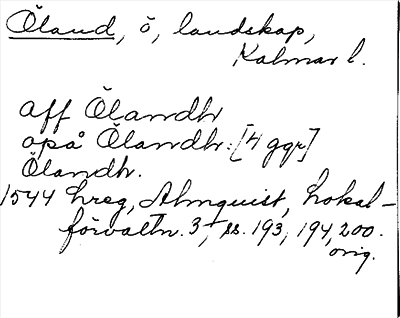 Öland, ö, landskap,
Kalmar l.
aff Ölandh
opå Ölandh. [4 ggr]
Ölandh.
1544 hreg, Almquist, Lokal-
förvaltn. 3, ss. 193, 194, 200.
orig.